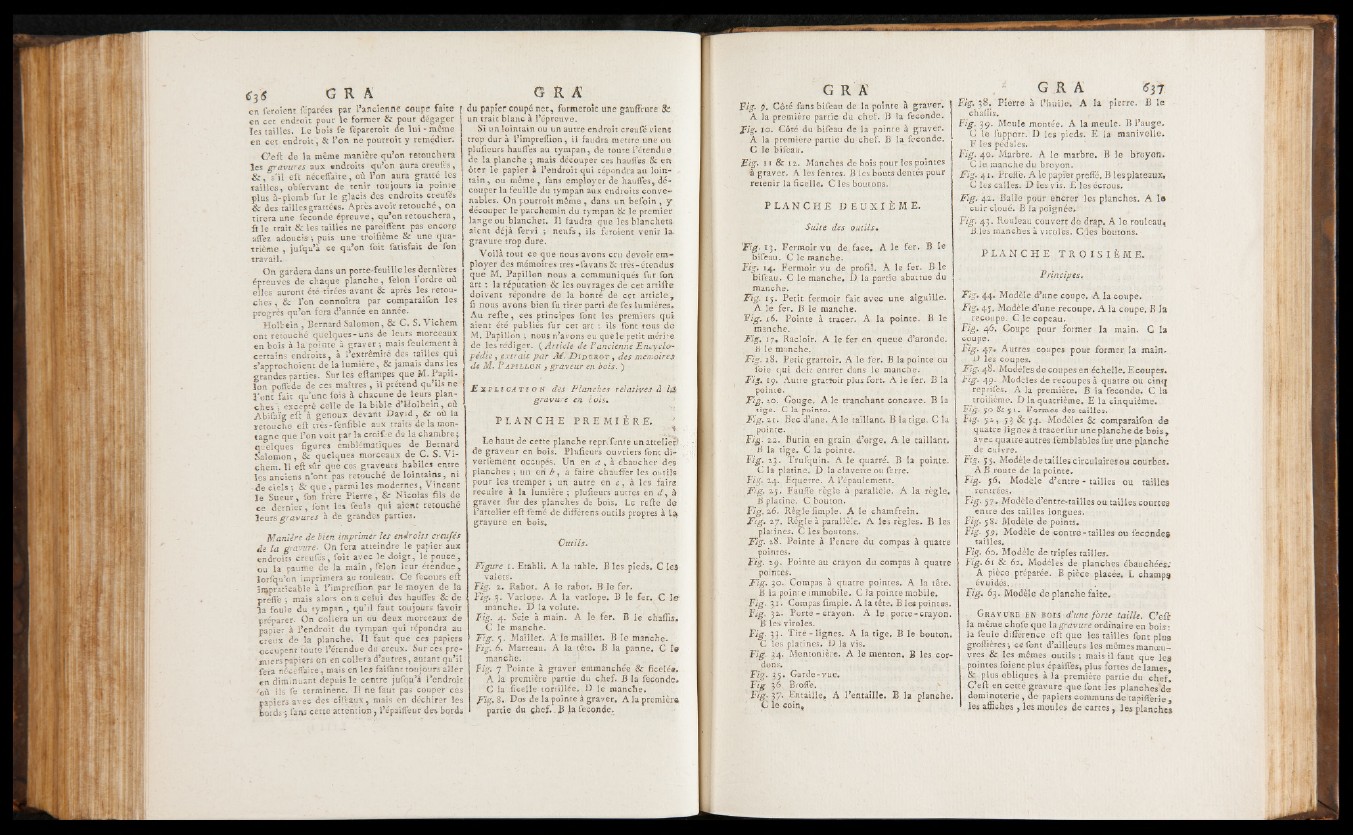 636 G R A
en seroient séparées par l'ancienne coupe faite
en cet endroit pour le former & pour dégager
les tailles. Le bois se sépareroit de lui-même
en cet endroit, & l'on ne pourroit y remédier.
C'est de la même manière qu'on retouchera
les gravures aux endroits qu'on aura creusés,
&, s'il est nécessaire, où l'on aura gratté les
tailles, observant de tenir toujours la pointe
plus à-plomb sur le glacis des endroits creusés
& des tailles grattées. Après avoir retouché, on
tirera une seconde épreuve, qu'on retouchera,
si le trait & les tailles ne paroissent pas encore
assez adoucis; puis une troisième & une qua-
trième, jusqu'à ce qu'on soit satisfait de son
travail.
On gardera dans un porte-feuille les dernières
épreuves de chaque planche, selon l'ordre où
elles auront été tirées avant & après les retou-
ches, & l'on connoîtra par comparaison les
progrès qu'on fera d'année en année.
Holbein, Bernard Salomon, & C. S. Vichem
ont retouché quelques-uns de leurs morceaux
en bois à la pointe à graver; mais seulement à
certains endroits, à l'extrémité des tailles qui
s'approchoient de la lumière, & jamais dans les
grandes parties. Sur les estampes que M. Papil-
lon possède de ces maîtres, il prétend qu'ils ne
l'ont fait qu'une fois à chacune de leurs plan-
ches; excepté celle de la bible d'Holbein, où
Abisaig est à genoux devant David, & où la
retouche est très-sensible aux traits de la mon-
tagne que l'on voit par la croisée de la chambre;
quelques figures emblématiques de Bernard
Salomon, & quelques morceaux de C. S. Vi-
chem. Il est sûr que ces graveurs habiles entre
les anciens n'ont pas retouché de lointains, ni
de ciels; & que, parmi les modernes, Vincent
le Sueur, son frère Pierre, & Nicolas fils de
ce dernier, sont les seuls qui aient retouché
leurs gravures à de grandes parties.
Manière de bien imprimer les endroits creusés
de la gravure. On fera atteindre le papier aux
endroits creusés, soit avec le doigt, le pouce,
ou la paume de la main, selon leur étendue,
lorsqu'on imprimera au rouleau. Ce secours est
impraticable à l'impression par le moyen de la
presse; mais alors on a celui des hausses & de
la foule du tympan, qu'il faut toujours savoir
préparer. On collera un ou deux morceaux de
papier à l'endroit du tympan qui répondra au
creux de la planche. Il faut que ces papiers
occupent toute l'étendue du creux. Sur ces pre-
miers papiers on en collera d'autres, autant qu'il
sera nécessaire, mais en les faisant toujours aller
en diminuant depuis le centre jusqu'à l'endroit
où ils se terminent. Il ne faut pas couper ces
papiers avec des ciseaux, mais en déchirer les
bords; sans cette attention, l'épaisseur des bords
G R A
du papier coupé net, formeroit une gaufure &
un trait blanc à l'épreuve.
Si un lointain ou un autre endroit creusé vient
trop dur à l'impression, il faudra mettre une ou
plusieurs hausses au tympan, de toute l'étendue
de la planche; mais découper ces hausses & en
ôter le papier à l'endroit qui répondra au loin-
tain, ou même, sans employer de hausses, dé-
couper la feuille du tympan aux endroits conve-
nables. On pourroit même, dans un besoin, y
découper le parchemin du tympan & le premier
lange ou blanchet. Il faudra que les blanchets
aient déjà servi; neufs, ils feroient venir la
gravure trop dure.
Voilà tout ce que nous avons cru devoir em-
ployer des mémoires très-savans & très-étendus
que M. Papillon nous a communiqués sur son
art : la réputation & les ouvrages de cet artiste
doivent répondre de la bonté de cet article,
si nous avons bien su tirer parti de ses lumières.
Au reste, ces principes sont les premiers qui
aient été publiés sur cet art : ils sont tous de
M. Papillon; nous n'avons eu que le petit mérite
de les rédiger. (Article de l'ancienne Encyclo-
pédie, extrait par M. DIDEROT, des mémoires
de M. PAPILLON, graveur en bois.)
EXPLICATION des Planches relatives à la
gravure en bois.
PLANCHE PREMIÈRE.
Le haut de cette planche représente un attelier
de graveur en bois. Plusieurs ouvriers sont di-
versement occupés. Un en a, à ébaucher des
planches; un en b, à faire chauffer les outils
pour les tremper; un autre en c, à les faire
recuire à la lumière; plusieurs autres en d, à
graver sur des planches de bois. Le reste de
l'attelier est semé de différens outils propres à la
gravure en bois.
Outils.
Figure 1. Etabli. A la table. B les pieds. C les
valets.
Fig. 2. Rabot. A le rabot. B le fer.
Fig. 3. Varlope. A la varlope. B le fer. C le
manche. D la volute.
Fig. 4. Scie à main. A le fer. B le chassis.
C le manche.
Fig. 5. Maillet. A le maillet. B le manche.
Fig. 6. Marteau. A la tête. B la panne. C le
manche.
Fig. 7. Pointe à graver emmanchée & ficelée.
A la première partie du chef. B la seconde.
C la ficelle tortillée. D le manche.
Fig. 8. Dos de la pointe à graver. A la première
partie du chef. B la seconde.
G R A
Fig. 9. Côté sans biseau de la pointe à graver.
A la première partie du chef. B la seconde.
Fig. 10. Côté du biseau de la pointe à graver.
A la première partie du chef. B la seconde.
C le biseau.
Fig. 11 & 12. Manches de bois pour les pointes
à graver. A les fentes. B les bouts dentés pour
retenir la ficelle. C les boutons.
PLANCHE DEUXIÈME.
Suite des outils.
Fig. 13. Fermoir vu de face. A le fer. B le
biseau. C le manche.
Fig. 14. Fermoir vu de profil. A le fer. B le
biseau. C le manche. D la partie abattue du
manche.
Fig. 15. Petit fermoir fait avec une aiguille.
A le fer. B le manche.
Fig. 16. Pointe à tracer. A la pointe. B le
manche.
Fig. 17. Racloir. A le fer en queue d'aronde.
B le manche.
Fig. 18. Petit grattoir. A le fer. B la pointe ou
soie qui doit entrer dans le manche.
Fig. 19. Autre grattoir plus fort. A le fer. B la
pointe.
Fig. 20. Gouge. A le tranchant concave. B la
tige. C la pointe.
Fig. 21. Bec d'âne. A le taillant. B la tige. C la
pointe.
Fig. 22. Burin en grain d'orge. A le taillant.
B la tige. C la pointe.
Fig. 23. Trusquin. A le quarré. B la pointe.
C la platine. D la clavette ou serre.
Fig. 24. Equerre. A l'épaulement.
Fig. 25. Fausse règle à parallèle. A la règle.
B platine. C bouton.
Fig. 26. Règle simple. A le chamfrein.
Fig. 27. Règle à parallèle. A les règles. B les
platines. C les boutons.
Fig. 28. Pointe à l'encre du compas à quatre
pointes.
Fig. 29. Pointe au crayon du compas à quatre
pointes.
Fig. 30. Compas à quatre pointes. A la tête.
B la pointe immobile. C la pointe mobile.
Fig. 31. Compas simple. A la tête. B les pointes.
Fig. 32. Porte-crayon. A le porte-crayon.
B les viroles.
Fig. 33. Tire-lignes. A la tige. B le bouton.
C les platines. D la vis.
Fig. 34. Mentonière. A le menton. B les cor-
dons.
Fig. 35. Garde-vue.
Fig 36 Brosse.
Fig. 37. Entaille. A l'entaille. B la planche.
C le coin.
G R A 637
Fig. 38. Pierre à l'huile. A la pierre. B le
chassis.
Fig. 39. Meule montée. A la meule. B l'auge.
C le support. D les pieds. E la manivelle.
F les pédales.
Fig. 40. Marbre. A le marbre. B le broyon.
C le manche du broyon.
Fig. 41. Presse. A le papier pressé. B les plateaux.
C les calles. D les vis. E les écrous.
Fig. 42. Balle pour encrer les planches. A le
cuir cloué. B la poignée.
Fig. 43. Rouleau couvert de drap. A le rouleau.
B les manches à viroles. C les boutons.
PLANCHE TROISIÈME.
Principes.
Fig. 44. Modèle d'une coupe. A la coupe.
Fig. 45. Modèle d'une recoupe. A la coupe. B la
recoupe. C le copeau.
Fig. 46. Coupe pour former la main. C la
coupe.
Fig. 47. Autres coupes pour former la main.
D les coupes.
Fig. 48. Modèles de coupes en échelle. E coupes.
Fig. 49. Modèles de recoupes à quatre ou cinq
reprises. A la première. B la seconde. C la
troisième. D la quatrième. E la cinquième.
Fig. 50 & 51. Formes des tailles.
Fig. 52, 53 & 54. Modèles & comparaison de
quatre lignes à tracer sur une planche de bois,
avec quatre autres semblables sur une planche
de cuivre.
Fig. 55. Modèle de tailles circulaires ou courbes.
A B route de la pointe.
Fig. 56. Modèle d'entre-tailles ou tailles
rentrées.
Fig. 57. Modèle d'entre-tailles ou tailles courtes
entre des tailles longues.
Fig. 58. Modèle de points.
Fig. 59. Modèle de contre-tailles ou secondes
tailles.
Fig. 60. Modèle de triples tailles.
Fig. 61 & 62. Modèles de planches ébauchées.
A pièce préparée. B pièce placée. L champs
évuidés.
Fig. 63. Modèle de planche faite.
GRAVURE EN BOIS d'une forte taille. C'est
la même chose que la gravure ordinaire en bois:
la seule différence est que les tailles sont plus
grossières; ce sont d'ailleurs les mêmes manœu-
vres & les mêmes outils; mais il faut que les
pointes soient plus épaisses, plus fortes de lames,
& plus obliques à la première partie du chef.
C'est en cette gravure que sont les planches de
dominoterie, de papiers communs de tapisserie,
les affiches, les moules de cartes, les planches